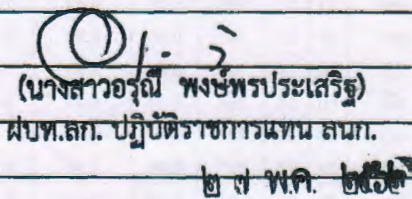 (นางสาวอรุณี พงษ์พรประเสริฐ)
ฝบท.สก. ปฏิบัติราชการแทน ลนก.
๒๗ พ.ค.